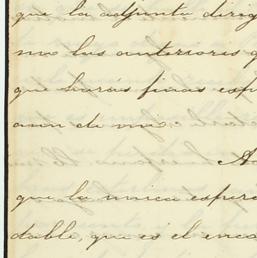 que la adjunta dirig
mo las anteriores q
que harás finas espr
aron de mi
A
que la unica espera
dable, que es el enca